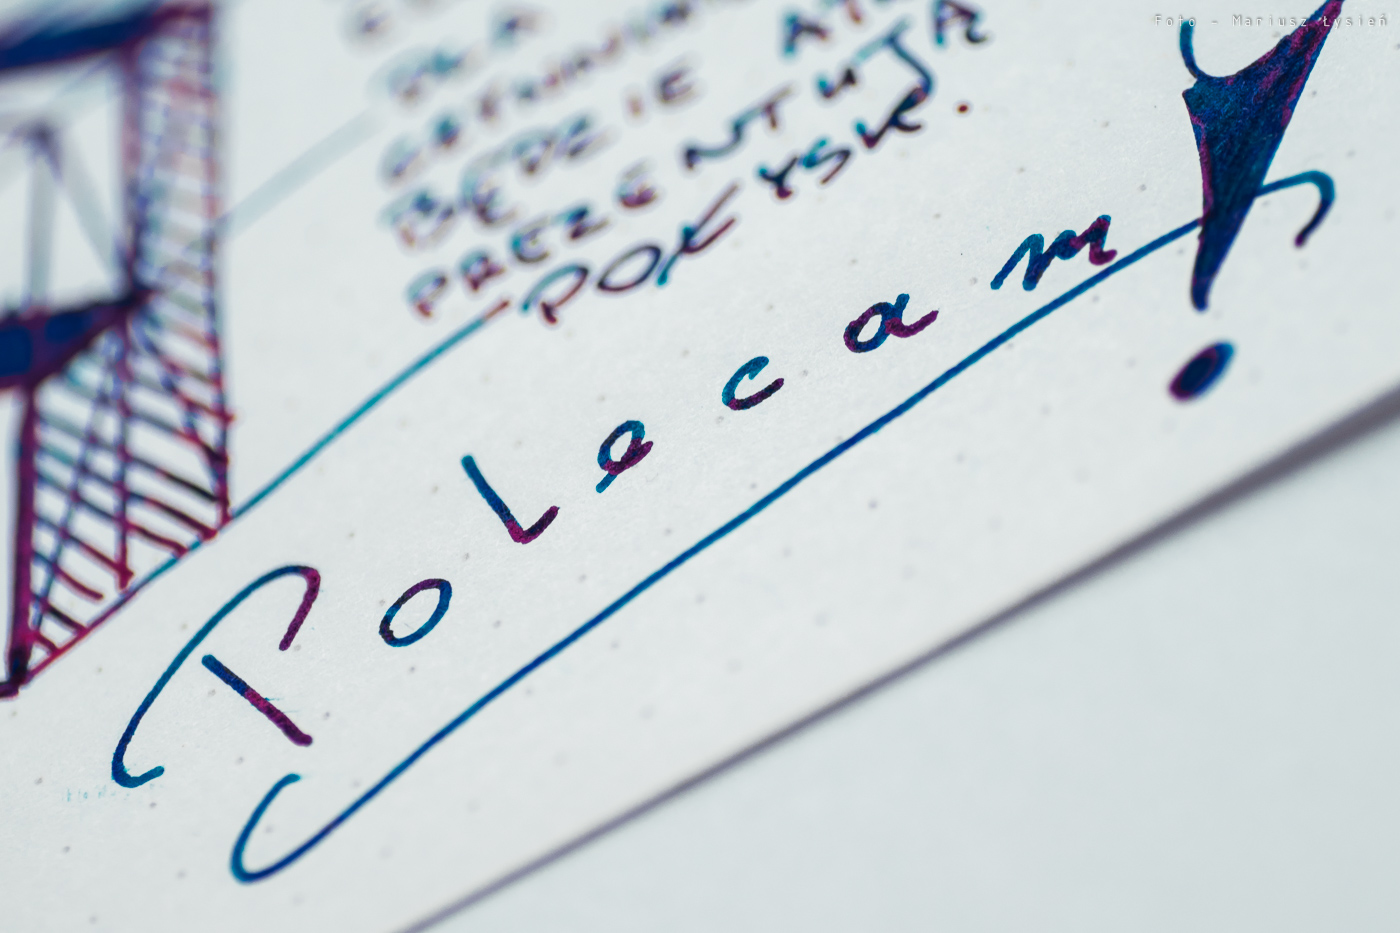 Foto - Mariusz Łysień
DLA
BĘDZIE
PREZENTUJĄ
POŁYSK.
Polecam!